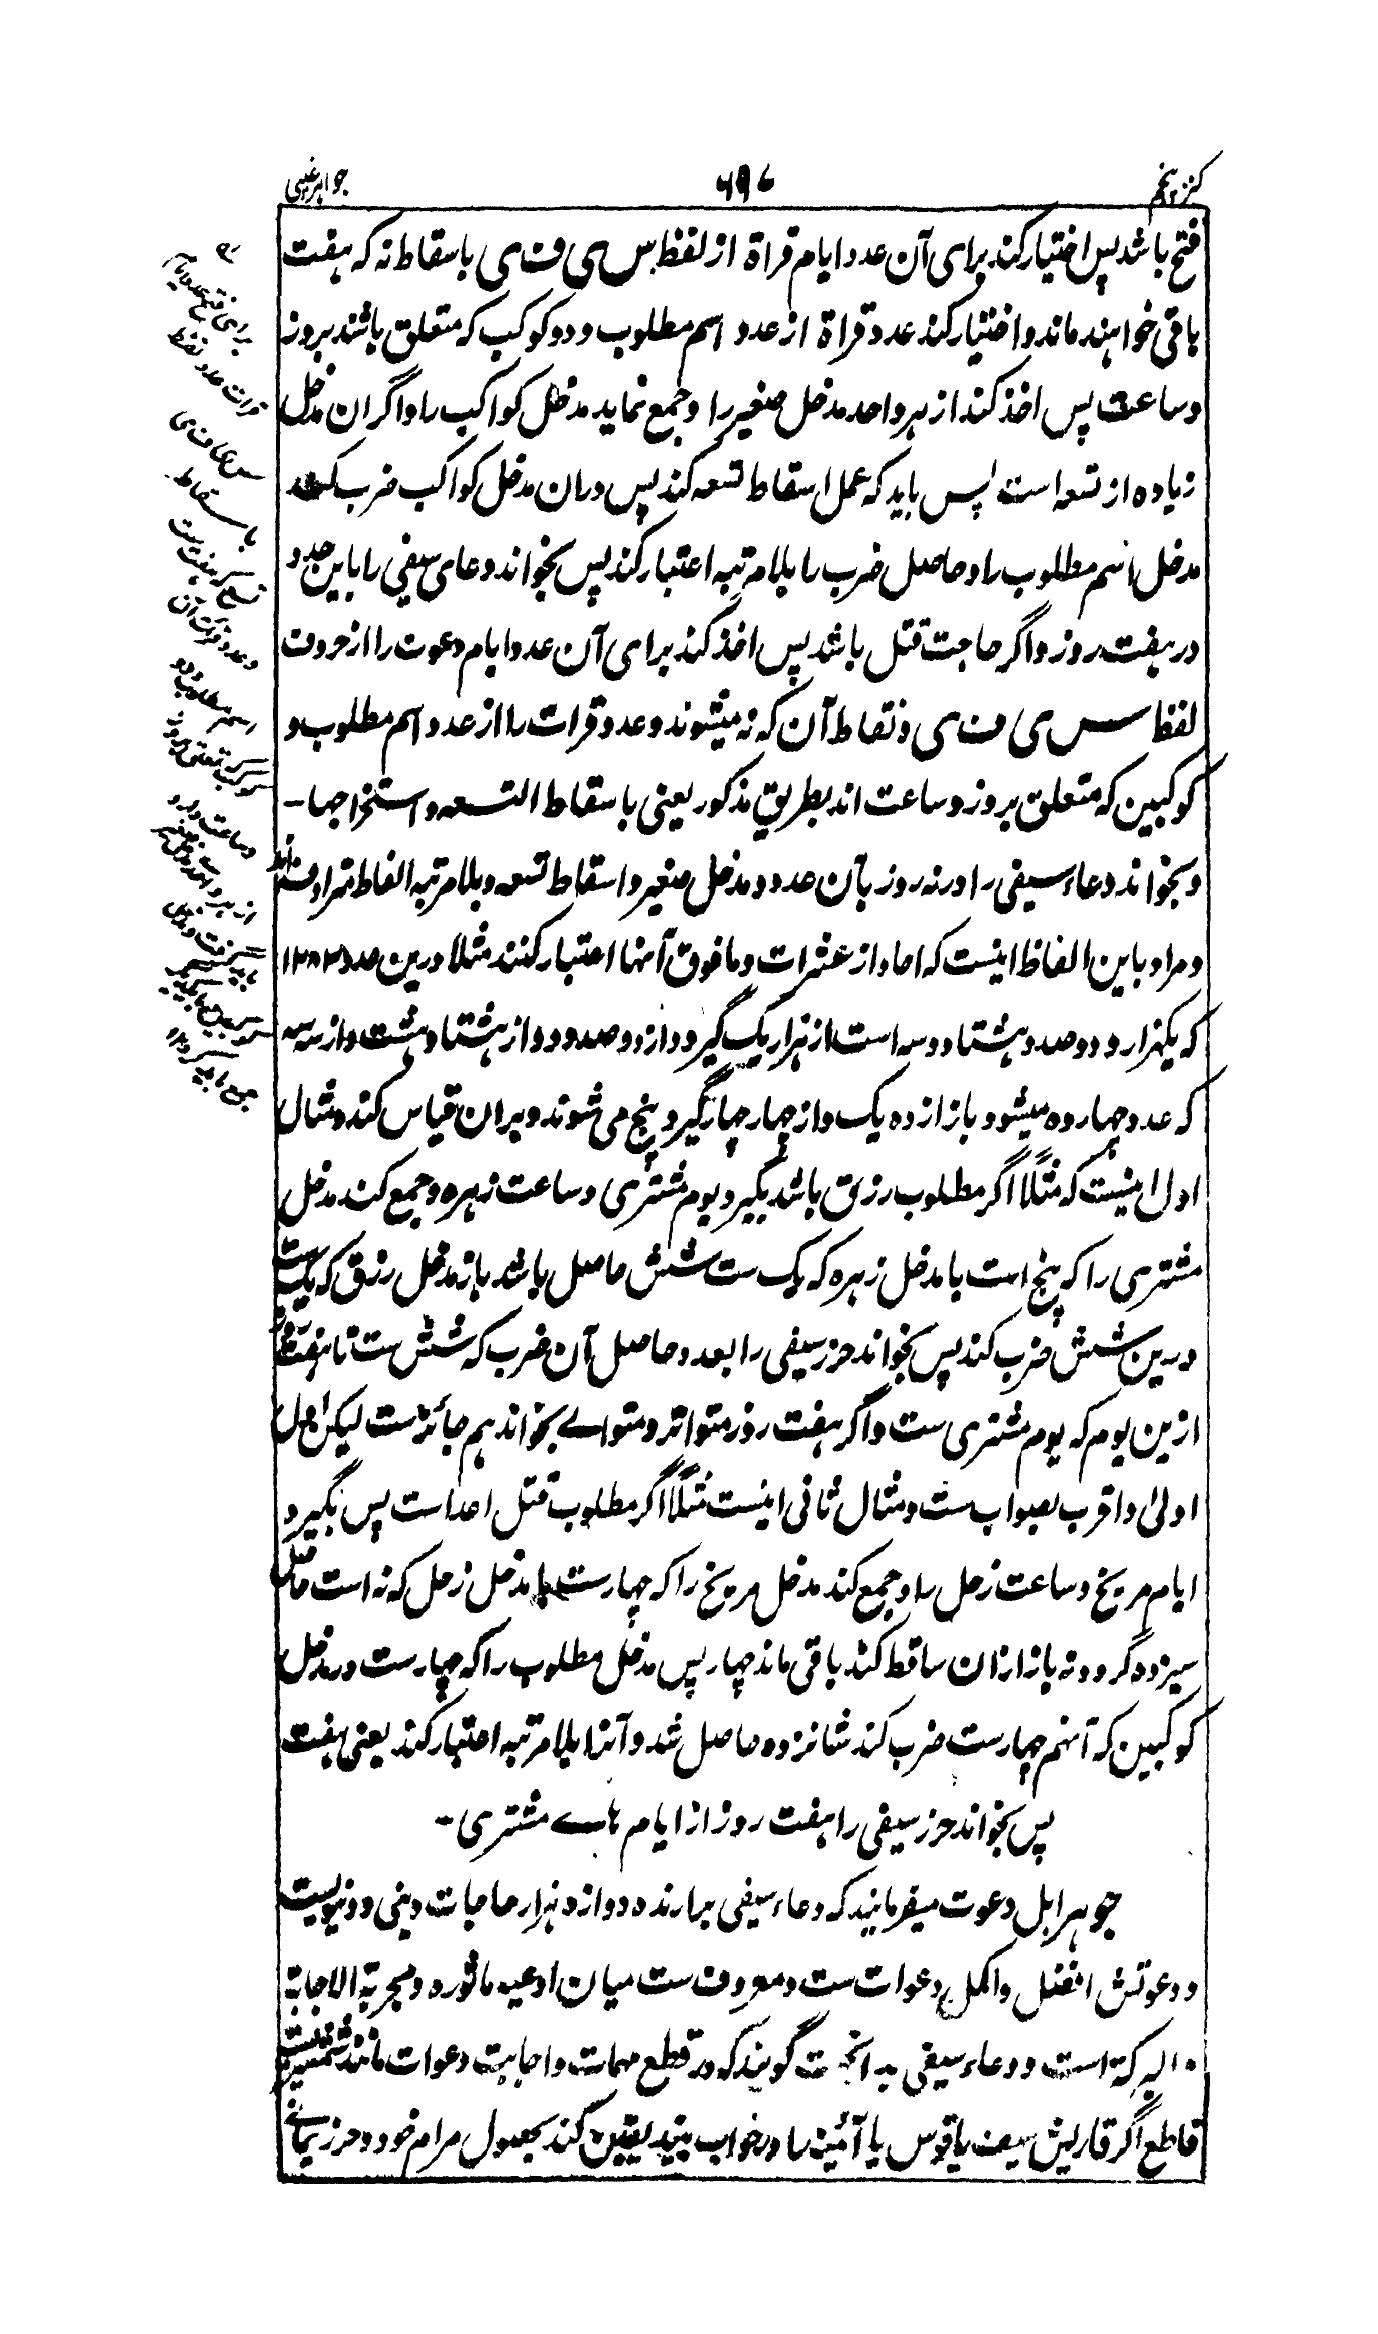 کنز پنجم
۶۹۷
جواہر غیبی
فتح باشد پس اختیار کند برای آن عدد ایام قراة از لفظ س ی ف ی باسقاط نہ کہ ہفت
باقی خواہند ماند و اختیار کند عدد قراة از عدد اسم مطلوب و دو کوکب کہ متعلق باشند بروز
و ساعت پس اخذ کند از ہر واحد مدخل صغیر را و جمع نماید مدخل کواکب را و اگر ان مدخل
زیادہ از تسعہ است پس باید کہ عمل اسقاط تسعہ کند پس دران مدخل کواکب ضرب کند
مدخل اسم مطلوب را و حاصل ضرب را بلا مرتبہ اعتبار کند پس بخواند دعای سیفی را باین عدد
در ہفت روز و اگر حاجت قتل باشد پس اخذ کند برای آن عدد ایام دعوت را از حروف
لفظ س ی ف ی و نقاط آن کہ نہ میشوند و عدد قرات را از عدد اسم مطلوب و
کوکبین کہ متعلق بروز و ساعت اند بطریق مذکور یعنی باسقاط التسعہ و استخراجہا -
و بخواند دعاء سیفی را در نہ روز بآن عدد و مدخل صغیر و اسقاط تسعہ و بلا مرتبہ الفاظ مترادفہ اند
و مراد باین الفاظ اینست کہ احاد از عشرات و مافوق آنہا اعتبار کنند مثلا درین عدد ۱۲۸۳
کہ یکہزار و دو صد و ہشتاد و سہ است از ہزار یک گیرد و از دو صد دو و از ہشتاد ہشت و از سہ سہ
کہ عدد چہاردہ میشود باز از دہ یک و از چہار چہار گیرد پنج می شوند و بران قیاس کند و مثال
اول اینست کہ مثلاً اگر مطلوب رزق باشد بگیرد یوم مشتری و ساعت زہرہ و جمع کند مدخل
مشتری را کہ پنج است با مدخل زہرہ کہ یک ست شش حاصل باشد باز مدخل رزق کہ یک ست
درین شش ضرب کند پس بخواند حرز سیفی را بعدد حاصل آن ضرب کہ شش ست تا ہفت روز
ازین یوم کہ یوم مشتری ست و اگر ہفت روز متواتر و متوالے بخواند ہم جائزست لیکن اول
اولیٰ و اقرب بصواب ست و مثال ثانی اینست مثلاً اگر مطلوب قتل اعداست پس بگیرد
ایام مریخ و ساعت زحل را و جمع کند مدخل مریخ را کہ چہارست با مدخل زحل کہ نہ است حاصل
سیزدہ گردد نہ باز ازان ساقط کند باقی ماند چہار پس مدخل مطلوب را کہ چہارست در مدخل
کوکبین کہ آنہم چہارست ضرب کند شانزدہ حاصل شد و آنرا بلا مرتبہ اعتبار کند یعنی ہفت
پس بخواند حرز سیفی را ہفت روز از ایام ہاے مشتری -
جوہر اہل دعوت میفرمایند کہ دعاء سیفی برارندہ دوازدہ ہزار حاجات دینی و دنیویست
و دعوتش افضل و اکمل دعوات ست و معروف ست میان ادعیہ ماثورہ و مجربة الاجابة
البرکة است و دعاء سیفی گویند کہ در قطع مہمات و اجابت دعوات مانند شمشیر
قاطع اگر قاریش سیف یا قوس یا آئینہ را در خواب بیند یقین کند بحصول مرام خود و حرز یمانے
برای فتح عدد ایام
قرات عدد لفظ
س ی ف ی
باسقاط
و عدد قرات آن
اسم مطلوب و دو
و ساعت